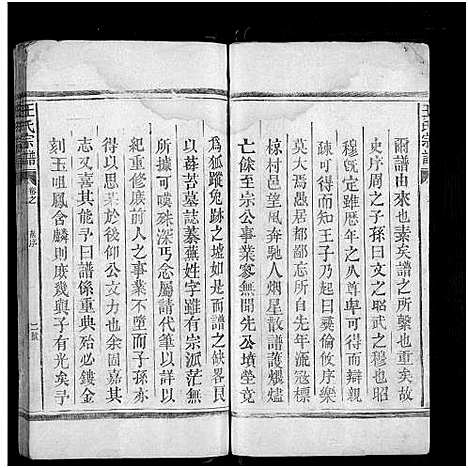 王氏宗譜
爾譜由來也素矣譜之所繫也重矣故
史序周之子孫曰文之昭武之穆也昭
穆既定雖歷年之懸于孫得而辯親
疎可得而知王子乃起曰彞倫攸序樂
莫大焉愚居都鄙忘所自先年流冦標
椋村邑望風奔馳人烟星散譜燬爐
亡餘至宗公事業寥無聞先公墳塋竟
爲狐蹤兔跡之墟如是而譜之缺畧艮
以莓苔墓誌綦蕪姓字雖有宗派茫無
所據可嘆殊深丐念屬請代筆以詳以
紀重修庶前人之事業不墮而子孫亦
得以思采於後仰公文力史之固嘉其
志又喜其能予曰譜係重典殆必鏤金
刻玉咀鳳含麟則庶幾與子有光矣予
王氏宗譜
卷之